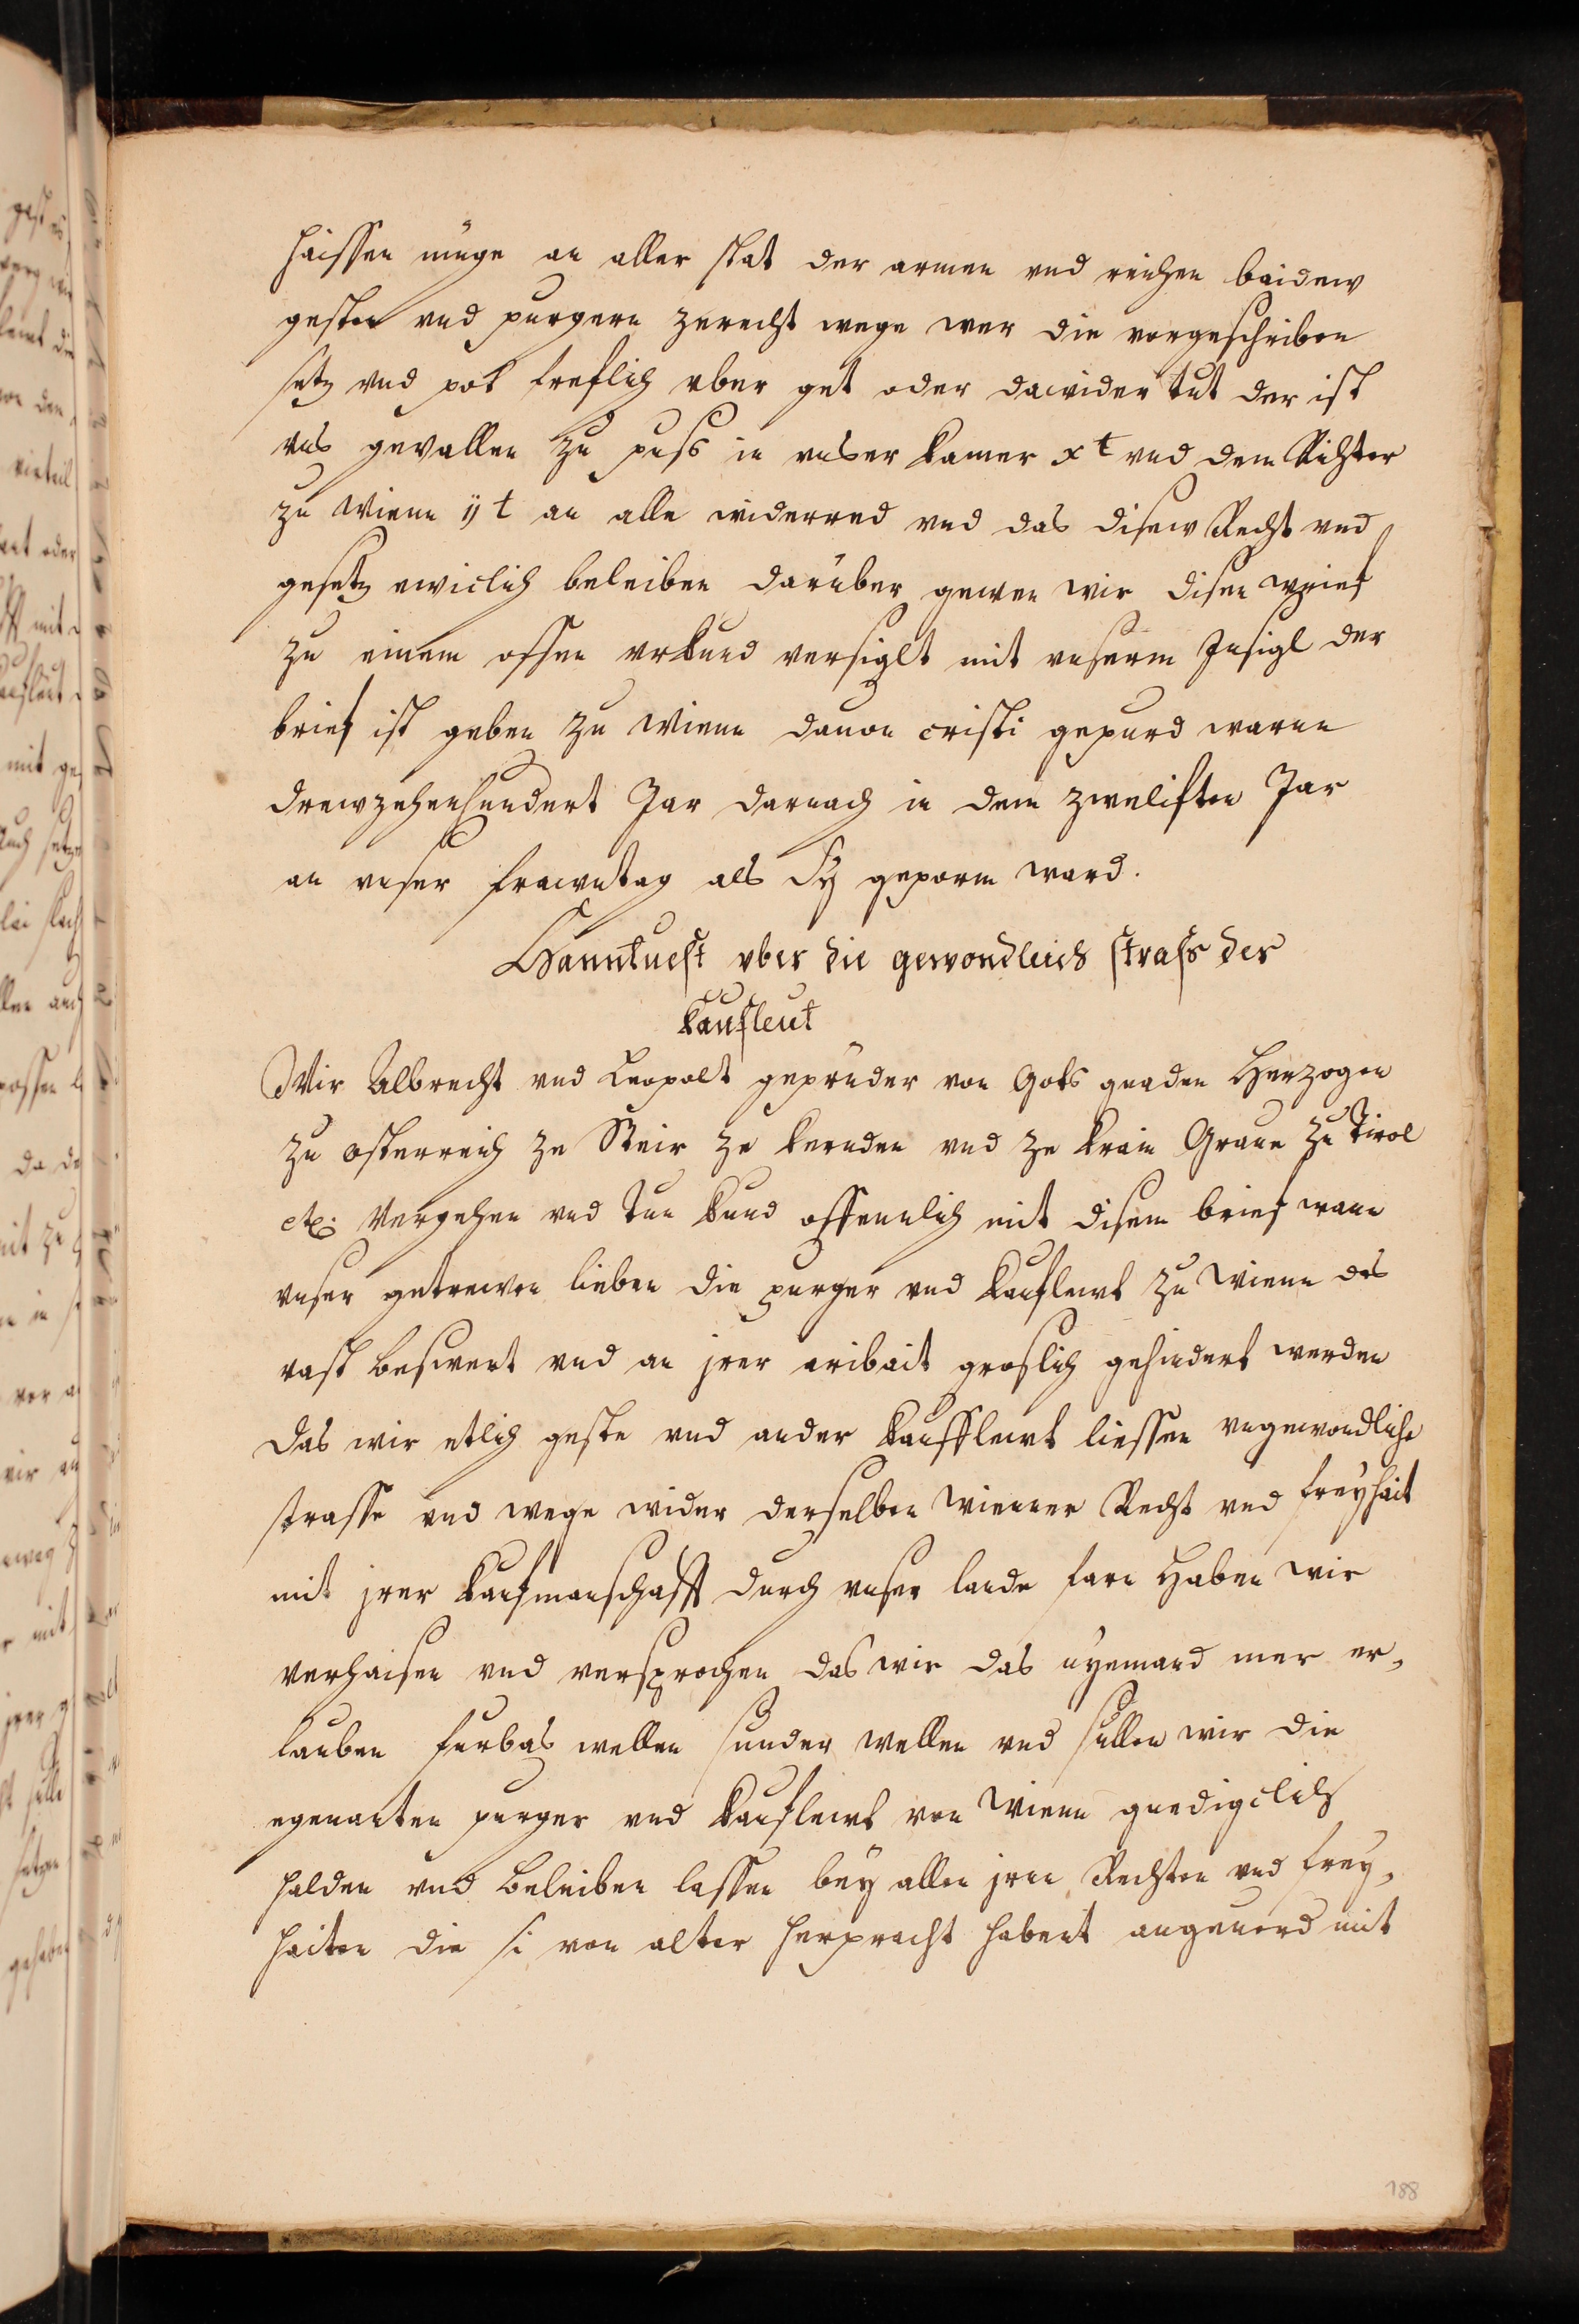 haissen müge an aller stat der armen vnd reichen baidew
gesten vnd purgern zerecht wege wer die vorgeschriben
setz vnd pot freflich vber get oder dawider tut der ist
vns gevallen zu puss in vnser kamer x t vnd dem Richter
zu Wienn ij t an alle widerred vnd das disew Recht vnd
gesetz ewiclich beleiben darüber gewen wir disen brief
zu einem offen vrkund versiglt mit vnserm Insigl der
brief ist geben zu Wienn dauon cristi gepurd waren
drewzehenhundert Jar darnach in dem zweliften Jar
an vnser frawntag als Sy geporn ward.
Hanntuest vber die gewondleich strass der
kaufleut
Wir Albrecht vnd Leopolt geprüder von Gots gnaden Herzogen
zu Osterreich ze Steir ze kernden vnd ze krain Graue zu Tirol
etc. Vergehen vnd Tun kund offennlich mit disem brief wann
vnser getrewen lieben die purger vnd kaufleut zu Wienn des
vast beswert vnd an jrer aribait groslich gehindert werden
das wir etlich geste vnd ander kauffleut liessen vngewondliche
strasse vnd wege wider derselben Wienner Recht vnd freyhait
mit jrer kaufmanschafft durch vnser lande farn Haben wir
verhaisen vnd versprochen das wir das nyemand mer er-
lauben furbas wellen sunder wellen vnd sullen wir die
egenanten purger vnd kaufleut von Wienn gnedigclich
halden vnd beleiben lassen bey allen jren Rechten vnd frey-
haiten die si von alter herpracht habent angeuerd mit
188